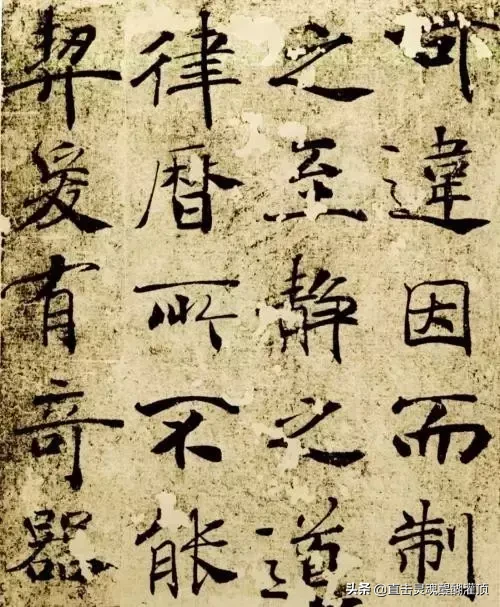 可違因而制
之至靜之道
律曆所不能
契爰有奇器
头条 @直击灵魂醍醐灌顶